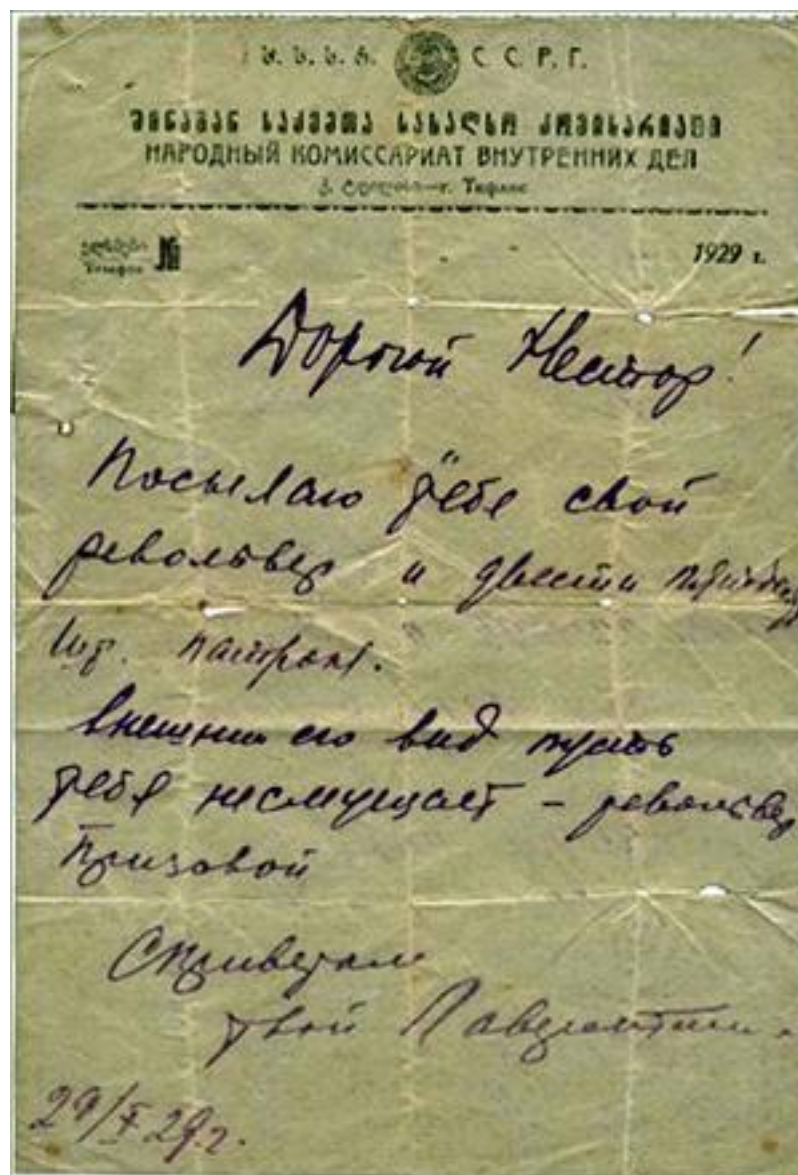 ს. ს. ს. რ. С. С. Р. Г.
შინაგან საქმეთა სახალხო კომისარიატი
НАРОДНЫЙ КОМИССАРИАТ ВНУТРЕННИХ ДЕЛ
г. Тифлис
№ 1929 г.
Дорогой Нестор!
Посылаю тебе свой
револьвер и двести
шт. патрон.
Внешний его вид пусть
тебя несмущает – револьвер
призовой
С приветом
твой Лаврентий.
29/X 29 г.